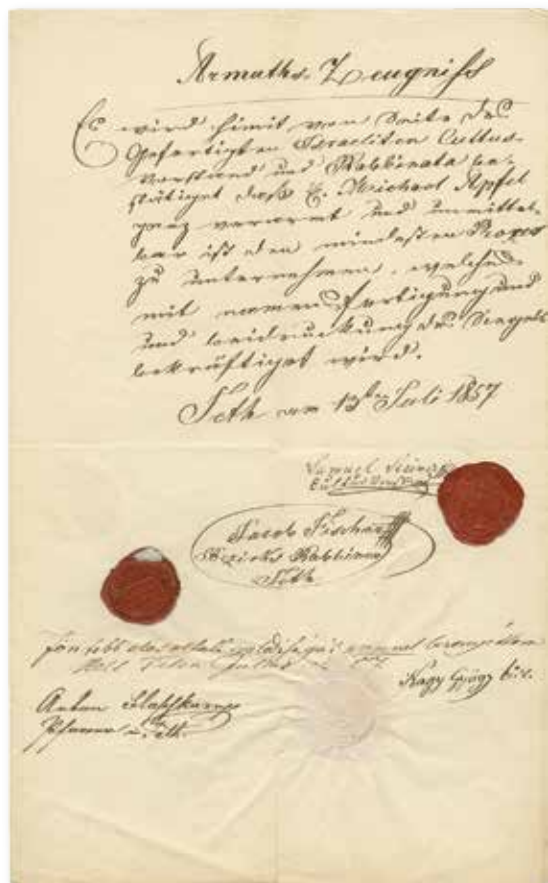 Armuths-Zeugniß
Es wird himit von Seite des
Gefertigten Israeliten Cultus-
vorstand und Rabbinats be-
stätiget daß H. Michael Apfel
ganz verarmt und unmittel-
bar ist den mindesten Prozes
zu unternehmen, welches
mit namensfertigung und
und beidruckung des Siegels
bekräftiget wird.
Teth am 13ten Juli 1857
Samuel
Cultus Vorstand
Jacob Fischer
Bezirks Rabbiner
Teth
Nagy György bíró
Anton
Pfarrer Teth.